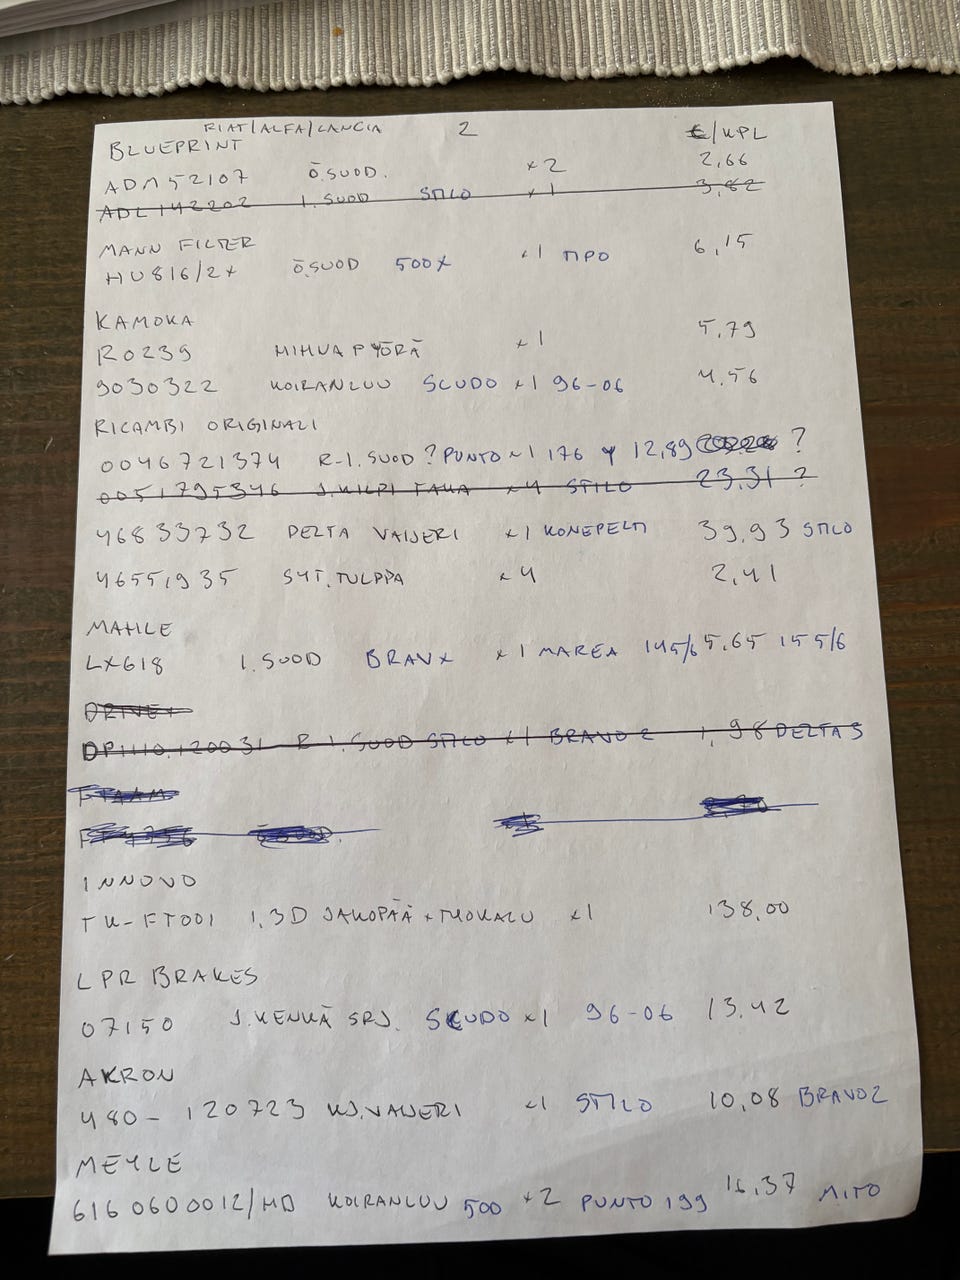 FIAT/ALFA/LANCIA 2 €/KPL
BLUEPRINT
ADM52107 Ö.SUOD. x2 2,66
ADL142202 I.SUOD STILO x1 3,82
MANN FILTER
HU816/2X Ö.SUOD 500X x1 TIPO 6,15
KAMOKA
R0239 HIHNAPYÖRÄ x1 5,79
9030322 KOIRANLUU SCUDO x1 96-06 4,56
RICAMBI ORIGINALI
0046721374 R-I.SUOD ? PUNTO x1 176 12,89 ?
0051795346 J.KILPI TAKA x4 STILO 23,31 ?
46833732 DELTA VAIJERI x1 KONEPELTI 39,93 STILO
46551935 SYT.TULPPA x4 2,41
MAHLE
LX618 I.SUOD BRAVX x1 MAREA 145/6 5,65 155/6
DRIVE+
DP1110.120031 R-I.SUOD STILO x1 BRAVO 2 1,98 DELTA 3
INNOVO
TK-FT001 1,3D JAKOPÄÄ+TYÖKALU x1 138,00
LPR BRAKES
07150 J.KENKÄ SRJ. SCUDO x1 96-06 13,42
AKRON
480-120723 KJ.VAIJERI x1 STILO 10,08 BRAVO2
MEYLE
616 060 0012/HD KOIRANLUU 500 x2 PUNTO 199 16,37 MITO